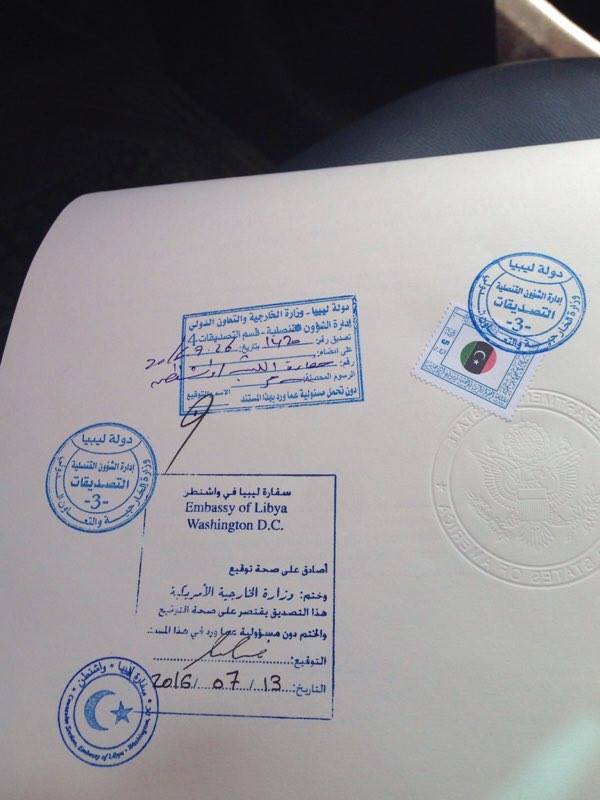 دولة ليبيا
إدارة الشؤون القنصلية
التصديقات
-3-
وزارة الخارجية والتعاون الدولي
دولة ليبيا - وزارة الخارجية والتعاون الدولي
إدارة الشؤون القنصلية - قسم التصديقات 4
تصديق رقم: 1420 بتاريخ:
على إمضاء:
رقم:
الرسوم المحصلة
دون تحمل مسئولية عما ورد بهذا المستند
الاسم والتوقيع
دولة ليبيا
إدارة الشؤون القنصلية
التصديقات
-3-
وزارة الخارجية والتعاون الدولي
سفارة ليبيا في واشنطن
Embassy of Libya
Washington D.C.
أصادق على صحة توقيع
وختم: وزارة الخارجية الأمريكية
هذا التصديق يقتصر على صحة التوقيع
والختم دون مسؤولية عما ورد في هذا
التوقيع:
التاريخ: 13 / 07 / 2016
سفارة ليبيا • واشنطن
Embassy of Libya
STATES OF AMERICA